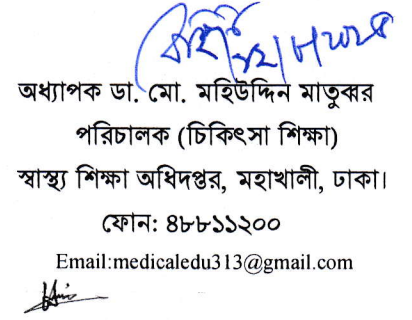 অধ্যাপক ডা. মো. মহিউদ্দিন মাতুব্বর
পরিচালক (চিকিৎসা শিক্ষা)
স্বাস্থ্য শিক্ষা অধিদপ্তর, মহাখালী, ঢাকা।
ফোন: ৪৮৮১১২০০
Email:medicaledu313@gmail.com